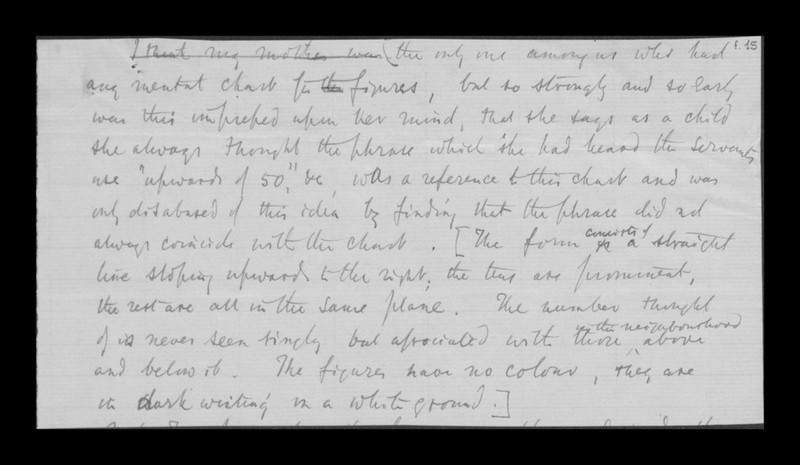 I think my mother was (the only one among us who had f.15
any mental chart for the figures, but so strongly and so early
was this impressed upon her mind, that she says as a child
she always thought the phrase which she had heard the servants
use "upwards of 50", &c, was a reference to this chart and was
only disabused of this idea by finding that the phrase did not
always coincide with the chart. [The form consists of a straight
line sloping upwards to the right; the tens are prominent,
the rest are all in the same plane. The number thought
of is never seen singly but associated with those in the neighbourhood above
and below it. The figures have no colour, they are
in dark writing on a white ground.]